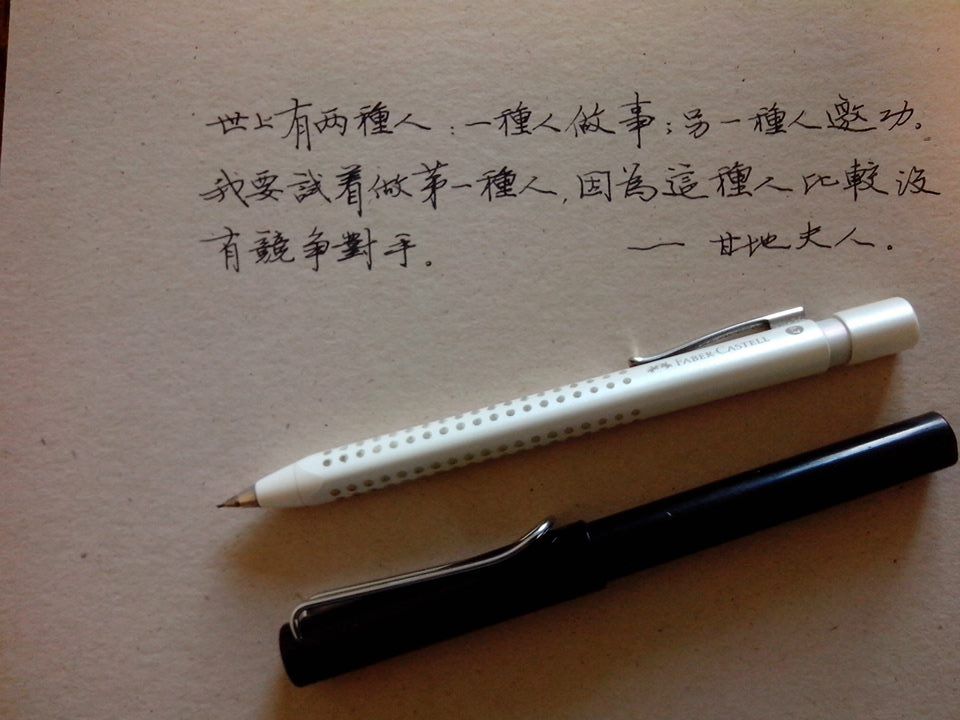 世上有两種人：一種人做事；另一種人邀功。
我要試着做第一種人，因為這種人比較没
有競争對手。 —— 甘地夫人。
FABER-CASTELL